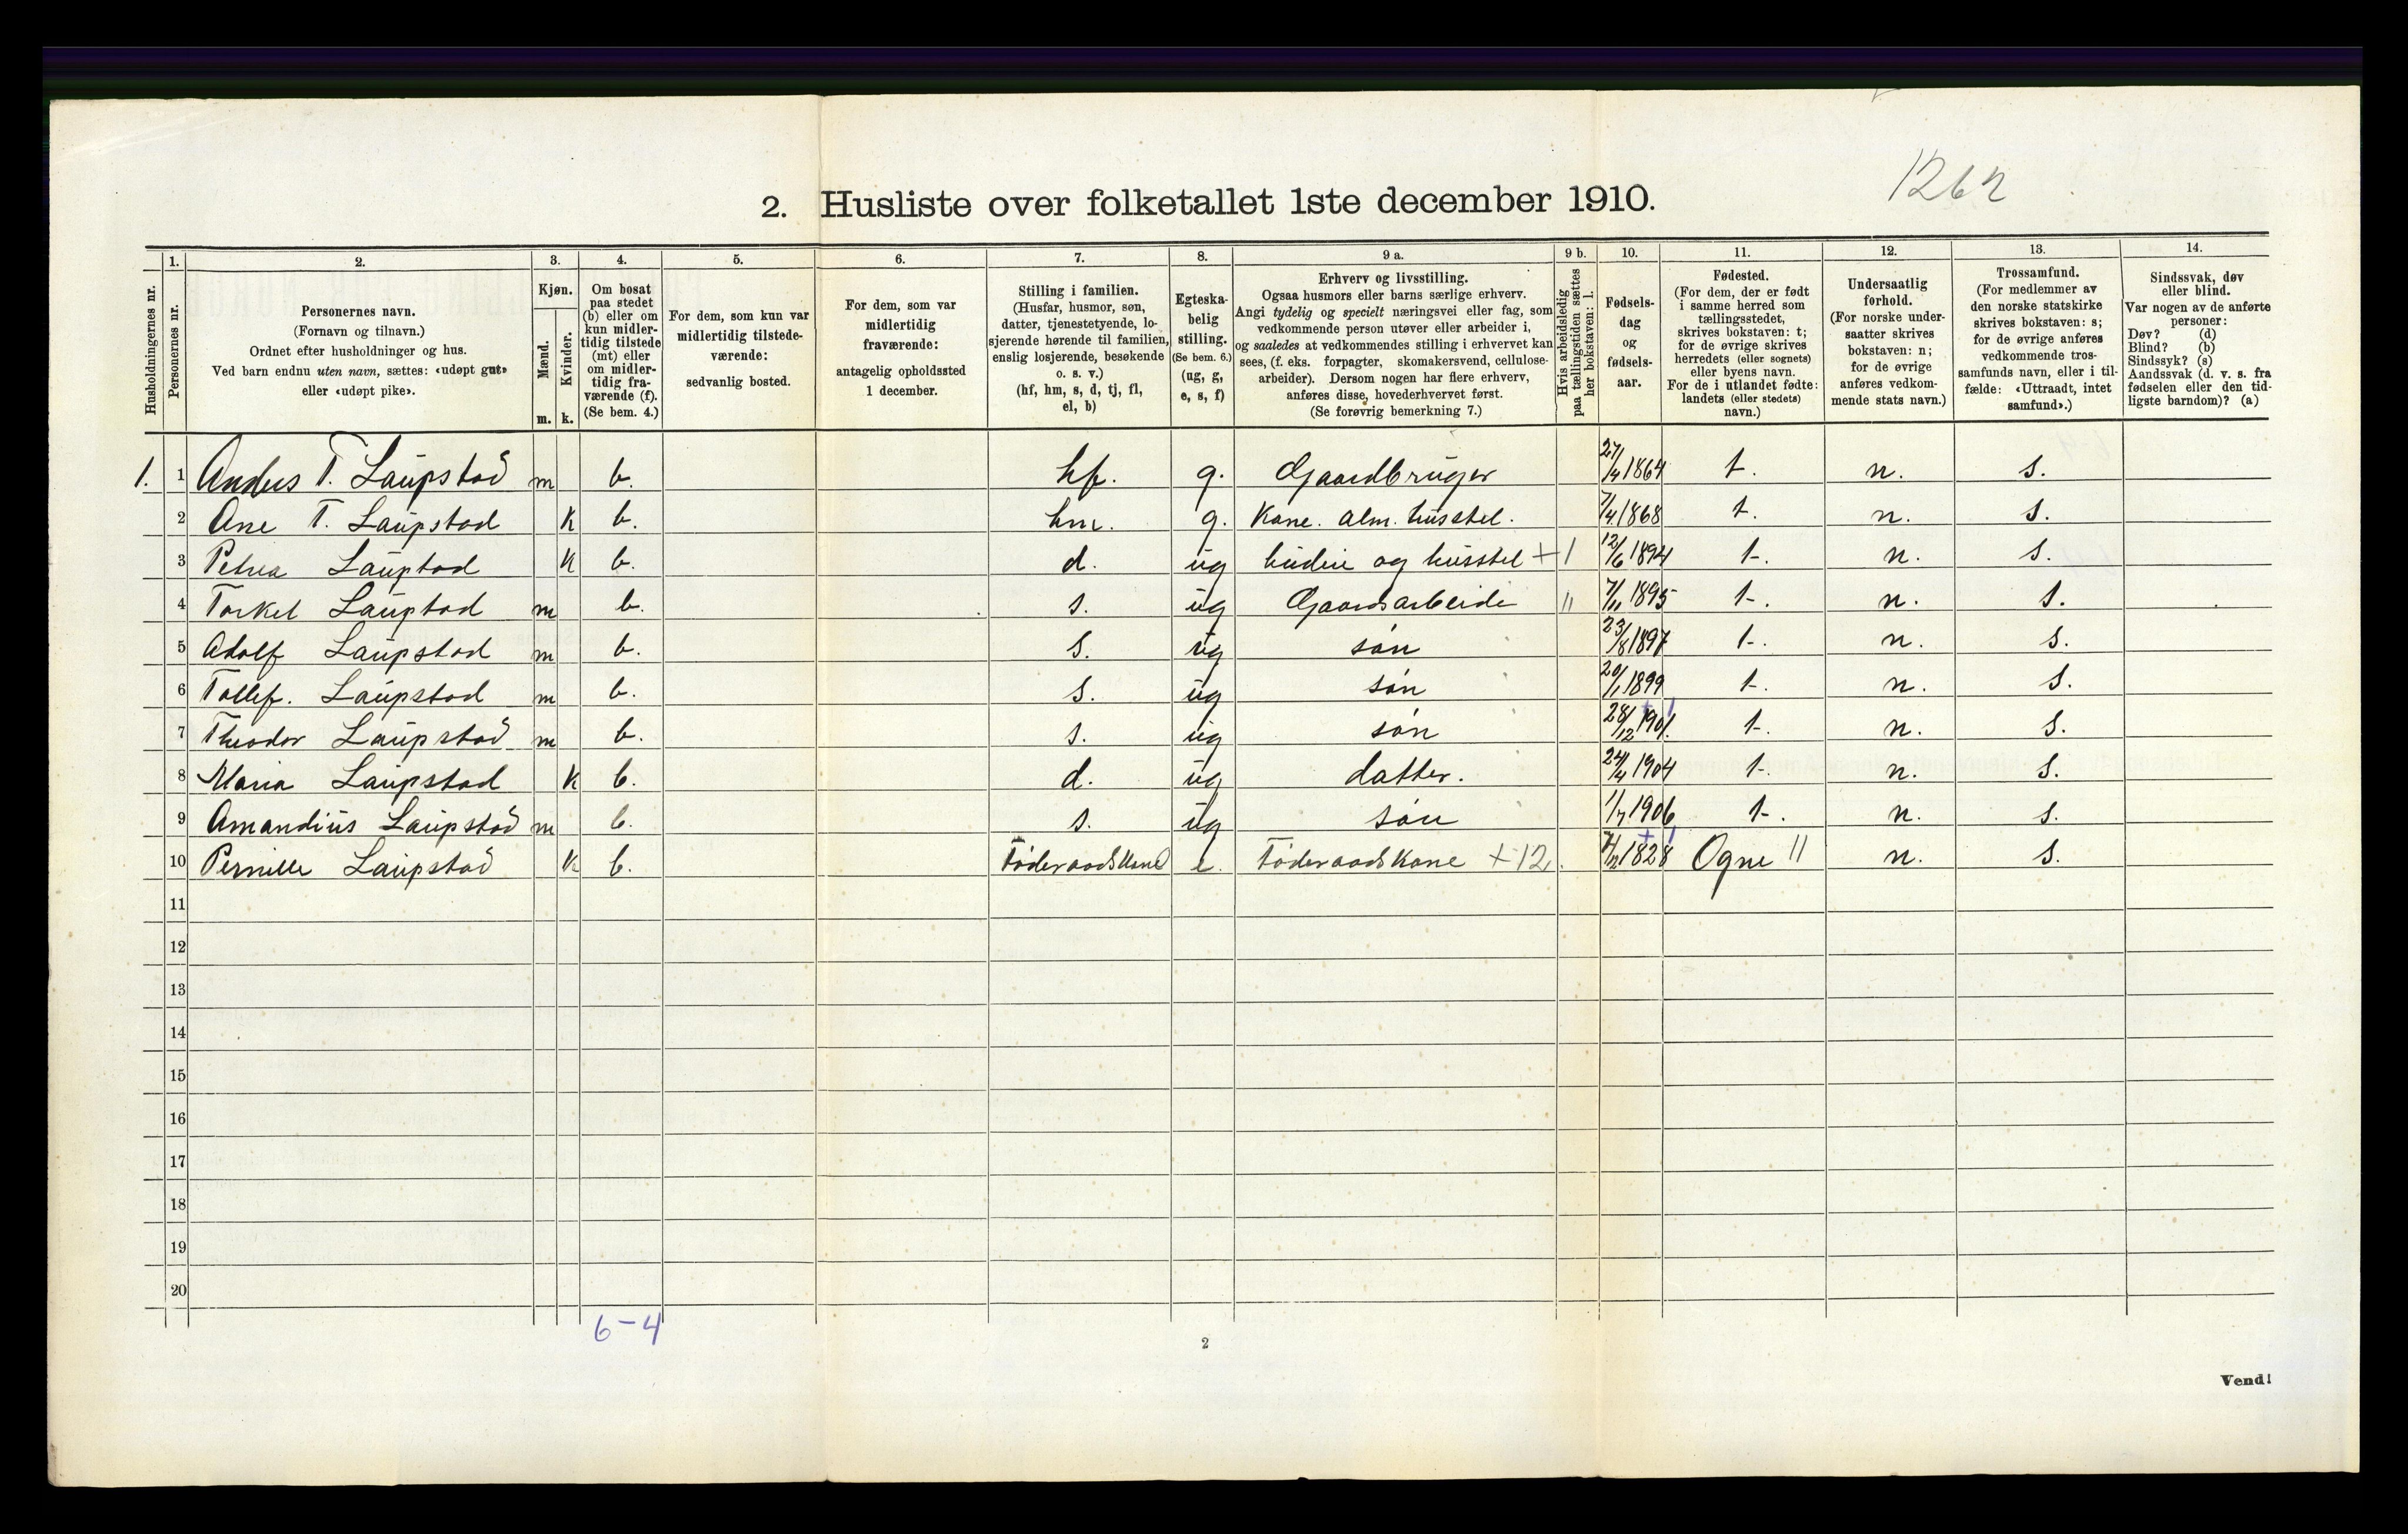 1262
2. Husliste over folketallet 1ste december 1910.
Husholdningernes nr.
1. Personernes nr.
2. Personernes navn.
(Fornavn og tilnavn.)
Ordnet efter husholdninger og hus.
Ved barn endnu uten navn, sættes: «udøpt gut»
eller «udøpt pike».
3. Kjøn.
Mænd. Kvinder.
m. k.
4. Om bosat
paa stedet
(b) eller om
kun midler-
tidig tilstede
(mt) eller
om midler-
tidig fra-
værende (f).
(Se bem. 4.)
5. For dem, som kun var
midlertidig tilstede-
værende:
sedvanlig bosted.
6. For dem, som var
midlertidig
fraværende:
antagelig opholdssted
1 december.
7. Stilling i familien.
(Husfar, husmor, søn,
datter, tjenestetyende, lo-
sjerende hørende til familien,
enslig losjerende, besøkende
o. s. v.)
(hf, hm, s, d, tj, fl,
el, b)
8. Egteska-
belig
stilling.
(Se bem. 6.)
(ug, g,
e, s, f)
9 a. Erhverv og livsstilling.
Ogsaa husmors eller barns særlige erhverv.
Angi tydelig og specielt næringsvei eller fag, som
vedkommende person utøver eller arbeider i,
og saaledes at vedkommendes stilling i erhvervet kan
sees, (f. eks. forpagter, skomakersvend, cellulose-
arbeider). Dersom nogen har flere erhverv,
anføres disse, hovederhvervet først.
(Se forøvrig bemerkning 7.)
9 b. Hvis arbeidsledig
paa tællingstiden sættes
her bokstaven: l.
10. Fødsels-
dag
og
fødsels-
aar.
11. Fødested.
(For dem, der er født
i samme herred som
tællingsstedet,
skrives bokstaven: t;
for de øvrige skrives
herredets (eller sognets)
eller byens navn.
For de i utlandet fødte:
landets (eller stedets)
navn.)
12. Undersaatlig
forhold.
(For norske under-
saatter skrives
bokstaven: n;
for de øvrige
anføres vedkom-
mende stats navn.)
13. Trossamfund.
(For medlemmer av
den norske statskirke
skrives bokstaven: s;
for de øvrige anføres
vedkommende tros-
samfunds navn, eller i til-
fælde: «Uttraadt, intet
samfund».)
14. Sindssvak, døv
eller blind.
Var nogen av de anførte
personer:
Døv? (d)
Blind? (b)
Sindssyk? (s)
Aandssvak (d. v. s. fra
fødselen eller den tid-
ligste barndom)? (a)
1. 1 Anders T. Laupstad m b. hf. g. Gaardbruger 27/4 1864 t. n. s.
2 Ane T. Laupstad K b. hm. g. Kone. alm. husstel. 7/4 1868 t. n. s.
3 Petrea Lauptad K b. d. ug budeie og husstel + 1 12/6 1894 t. n. s.
4 Torkel Lauptad m b. s. ug Gaardsarbeide " 7/11 1895 t. n. s.
5 Adolf Laupstad m b. s. ug søn 23/8 1897 t. n. s.
6 Tollef. Laupstad m b. s. ug søn 20/1 1899 t. n. s.
7 Theodor Laupstad m b. s. ug søn 28/12 1901. t. n. s.
8 Maria Laupstad K b. d. ug datter. 24/4 1904 t. n. s.
9 Amandius Laupstad m b. s. ug søn 1/7 1906 t. n. s.
10 Pernille Laupstad K b. Föderaadskone e. Föderaadskone + 12. 1828 Ogne 11 n. s.
11
12
13
14
15
16
17
18
19
20
6-4
2
Vend!